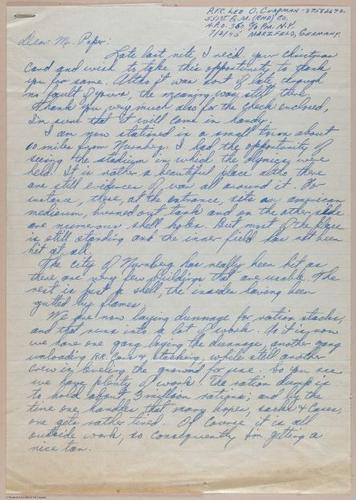 Pfc. Leo O. Chapman
A.P.O. 360 % P.M. N.Y.
7/2/45 Germany.
Dear Mr. Paper:
Late last nite, I rec'd your Christmas
Card and wish to take this opportunity to thank
you for same. Altho it was sort of late, through
no fault of yours, the meaning was still there.
Thank you very much also for the check enclosed,
I'm sure that it will come in handy.
I am now stationed in a small town about
10 miles from Nurnberg. I had the opportunity of
seeing the stadium in which the olympics were
held. It is rather a beautiful place altho there
are still evidences of war all around it. For
instance, there, at the entrance, sits an american
medium, burned out tank and on the other side
are numerous shell holes. But most of the place
is still standing and the inner field has not been
hit at all.
The city of Nurnberg has really been hit as
there are very few buildings that are usable. The
rest is just a shell, the inside having been
gutted by flames.
We are now laying dunnage for ration stacks,
and that runs into a lot of work. As it is now
we have one gang laying the dunnage, another gang
unloading R.R. Cars & stacking, while still another
crew is leveling the ground for use. So you see
we have plenty of work. The ration dump is
to hold about 3 million rations; and by the
time one handles that many boxes, sacks & cases,
one gets rather tired. Of course it is all
outside work, so consequently I'm getting a
nice tan.